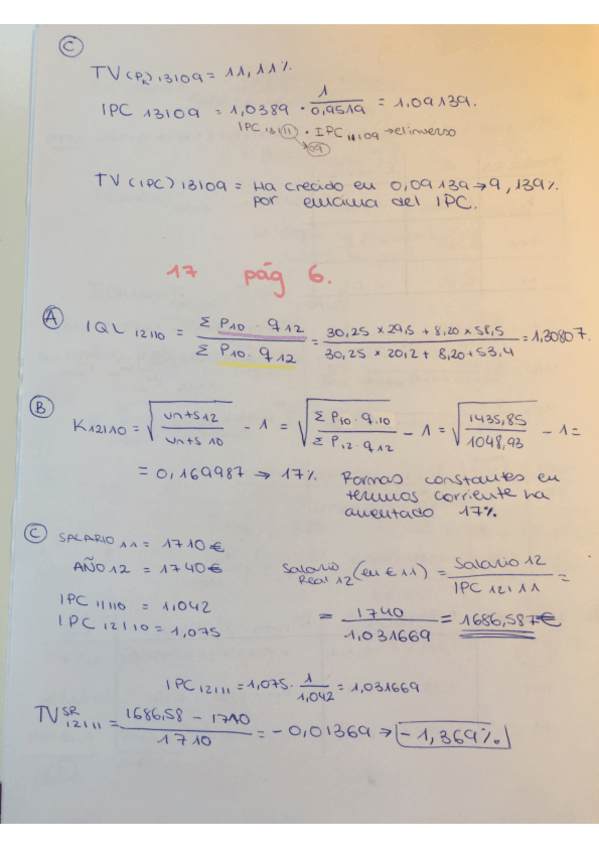 C
TV(PK) 13109 = 11,11%
IPC 13109 = 1,0389 · 1/0,9519 = 1,09139.
IPC 13111 · IPC 11109 → el inverso
09
TV(IPC) 13109 = Ha crecido en 0,09139 → 9,139%
por encima del IPC.
17 pág 6.
A IQL 12110 = Σ P10 · q12 / Σ P10 · q12 = 30,25 × 29,5 + 8,20 × 58,5 / 30,25 × 20,2 + 8,20 + 53,4 = 1,30807.
B K12110 = √(vnts12 / vnts10) - 1 = √(Σ P10 · q10 / Σ P12 · q12) - 1 = √(1435,85 / 1048,93) - 1 =
= 0,169987 → 17% Formas constantes en
terminos corriente ha
aumentado 17%.
C SALARIO 11 = 1710€
AÑO 12 = 1740€
IPC 11110 = 1,042
IPC 12110 = 1,075
Salario Real 12 (en € 11) = Salario 12 / IPC 12111 =
= 1740 / 1,031669 = 1686,587€
IPC 12111 = 1,075 · 1/1,042 = 1,031669
TV SR 12111 = 1686,58 - 1710 / 1710 = -0,01369 → -1,369%